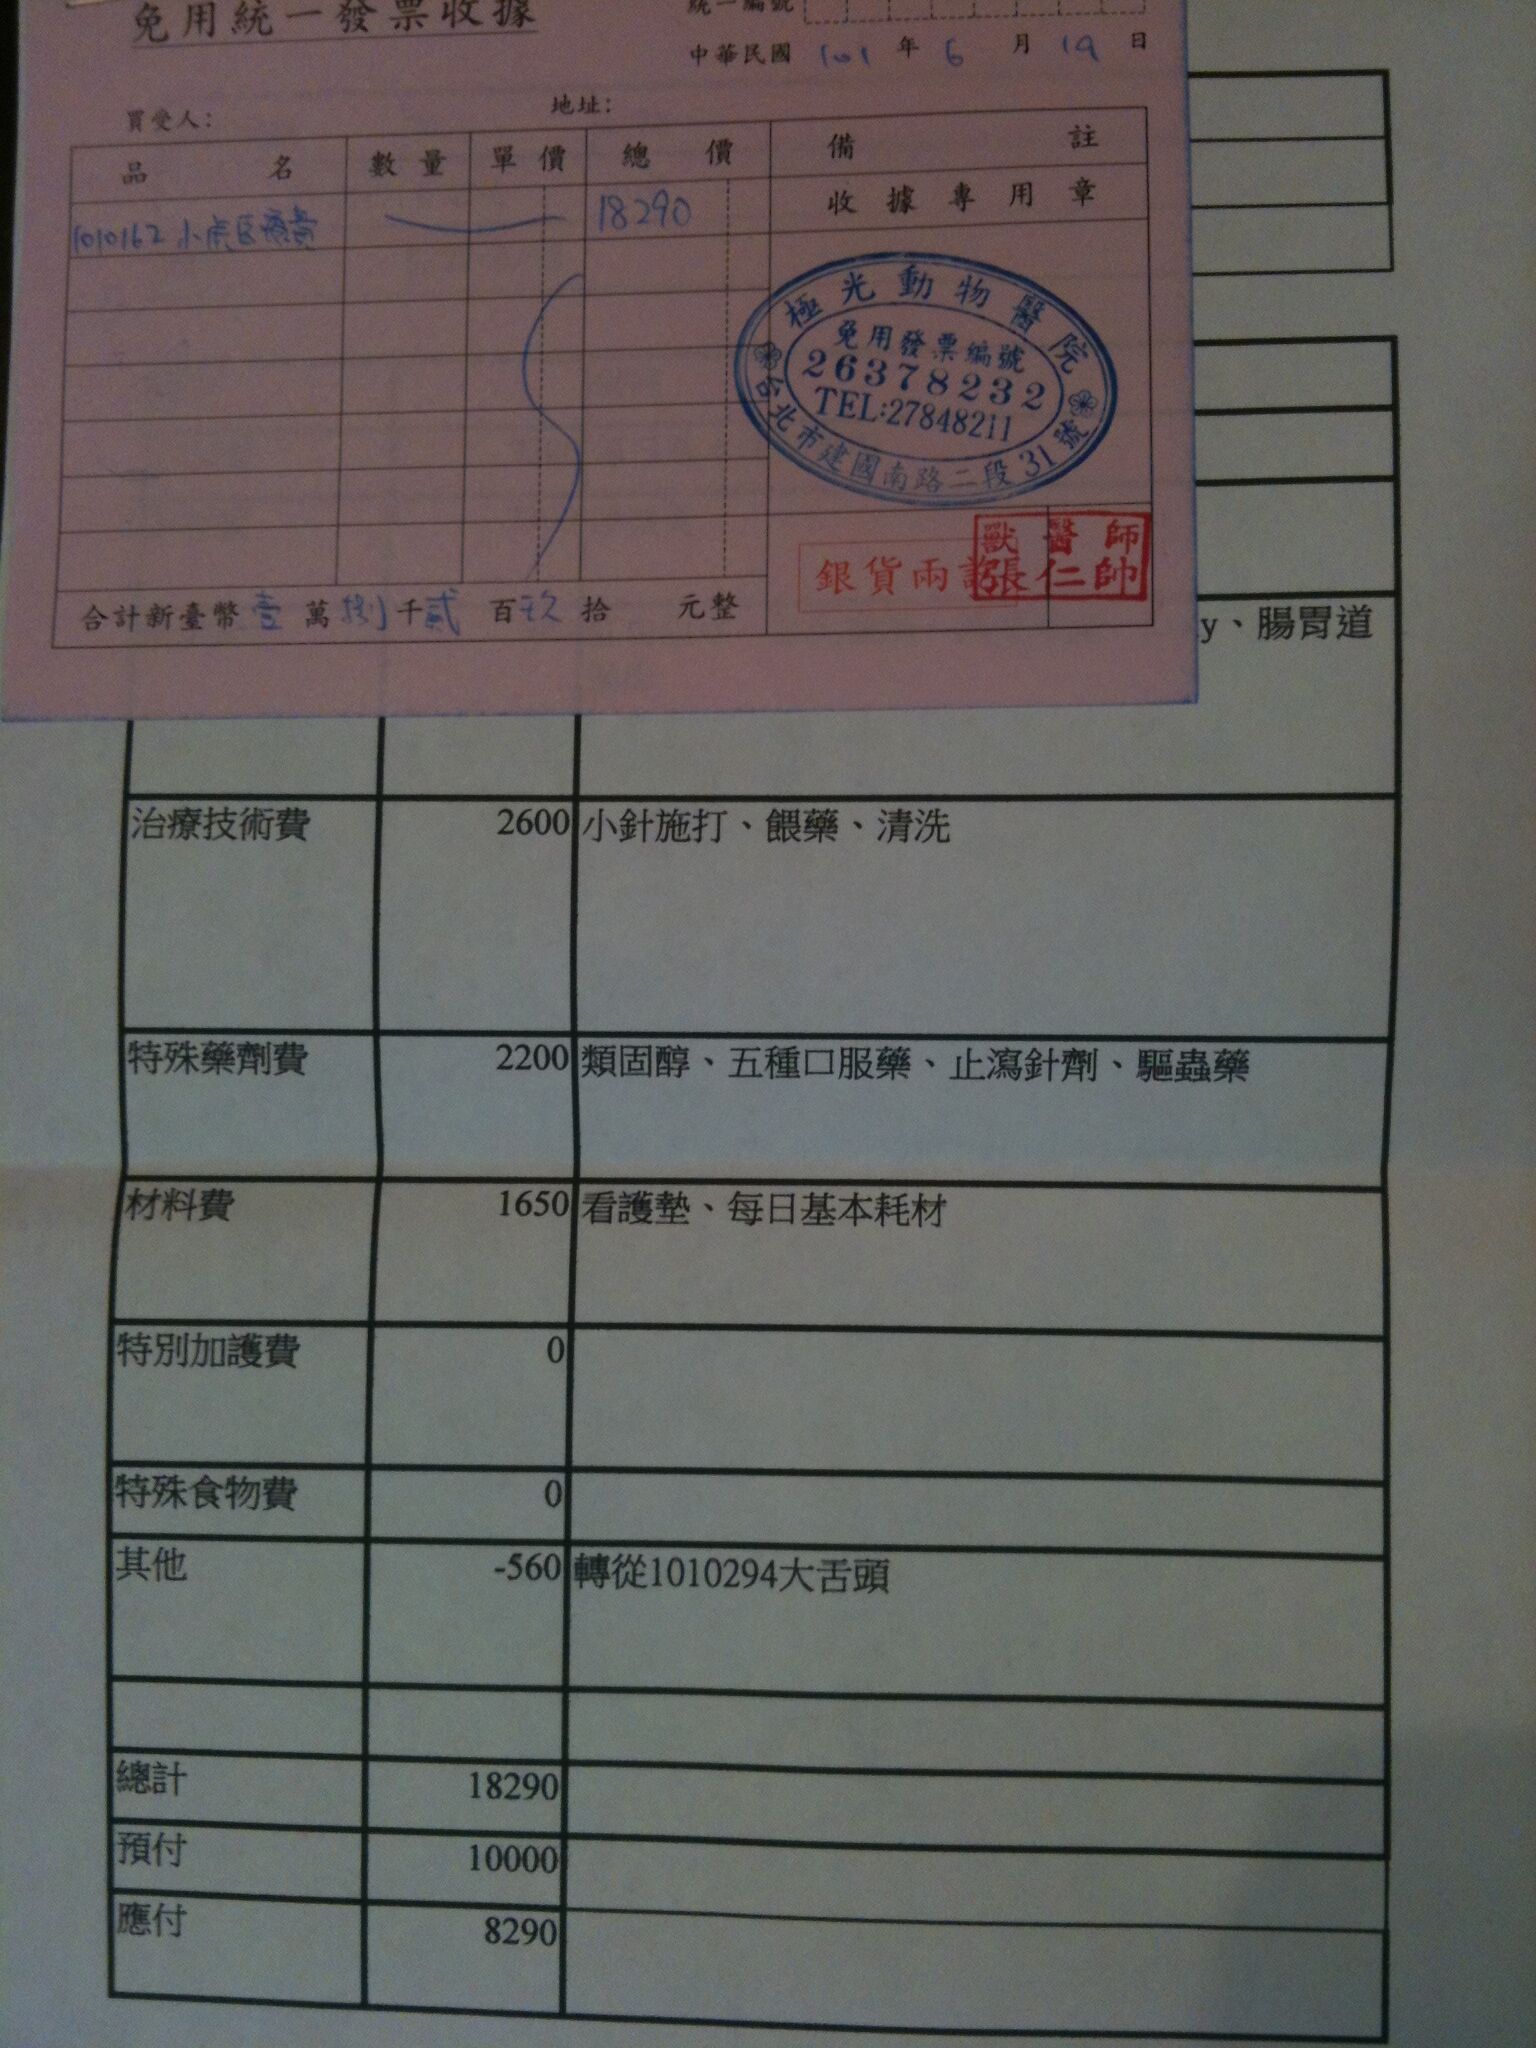 免用統一發票收據
統一編號
中華民國 101 年 6 月 19 日
買受人：
地址：
品名 數量 單價 總價 備註
收據專用章
1010162 小虎医療費 18290
極光動物醫院
免用發票編號
26378232
TEL:27848211
台北市建國南路二段31號
銀貨兩訖
獸醫師
張仁帥
合計新臺幣壹萬捌千貳百玖拾 元整
y、腸胃道
治療技術費 2600 小針施打、餵藥、清洗
特殊藥劑費 2200 類固醇、五種口服藥、止瀉針劑、驅蟲藥
材料費 1650 看護墊、每日基本耗材
特別加護費 0
特殊食物費 0
其他 -560 轉從1010294大舌頭
總計 18290
預付 10000
應付 8290